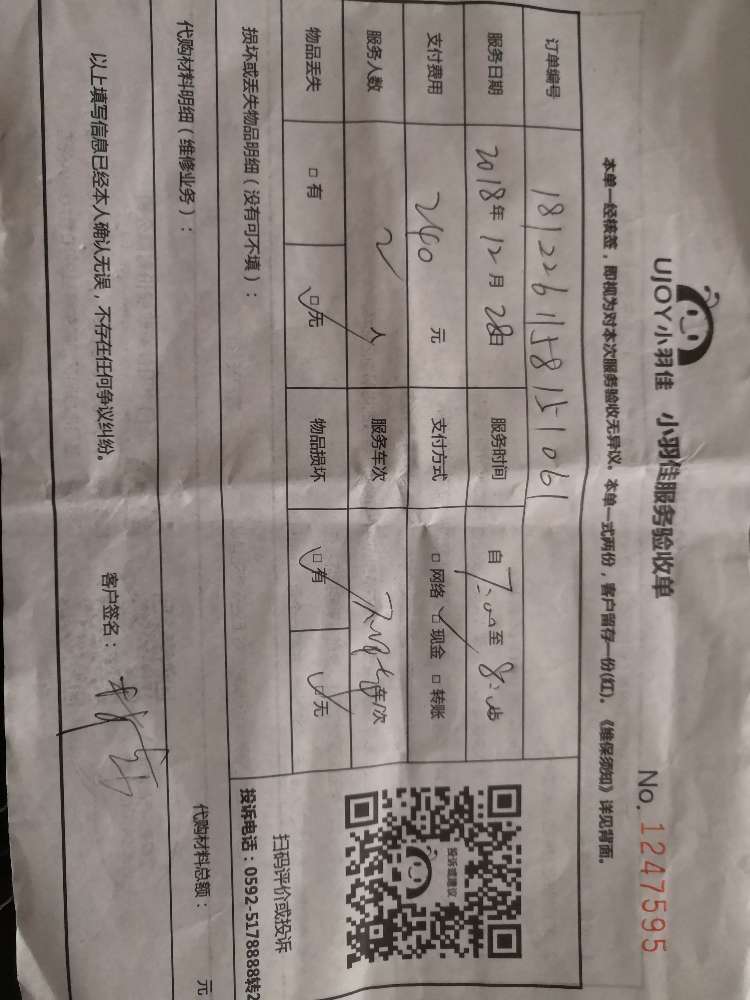 UJOY小羽佳 小羽佳服务验收单
No. 1247595
本单一经核签，即视为对本次服务验收无异议。本单一式两份，客户留存一份(红)。《维保须知》详见背面。
订单编号 1812261158151061
服务日期 2018年12月28日 服务时间 自7:00至8:
支付费用 240 元 支付方式 □网络 ☑现金 □转账
服务人数 2 人 服务车次 车/次
物品丢失 □有 ☑无 物品损坏 ☑有 ☑无
损坏或丢失物品明细（没有可不填）：
投诉或建议
扫码评价或投诉
投诉电话：0592-5178888转2
代购材料明细（维修业务）： 代购材料总额： 元
以上填写信息已经本人确认无误，不存在任何争议纠纷。 客户签名：